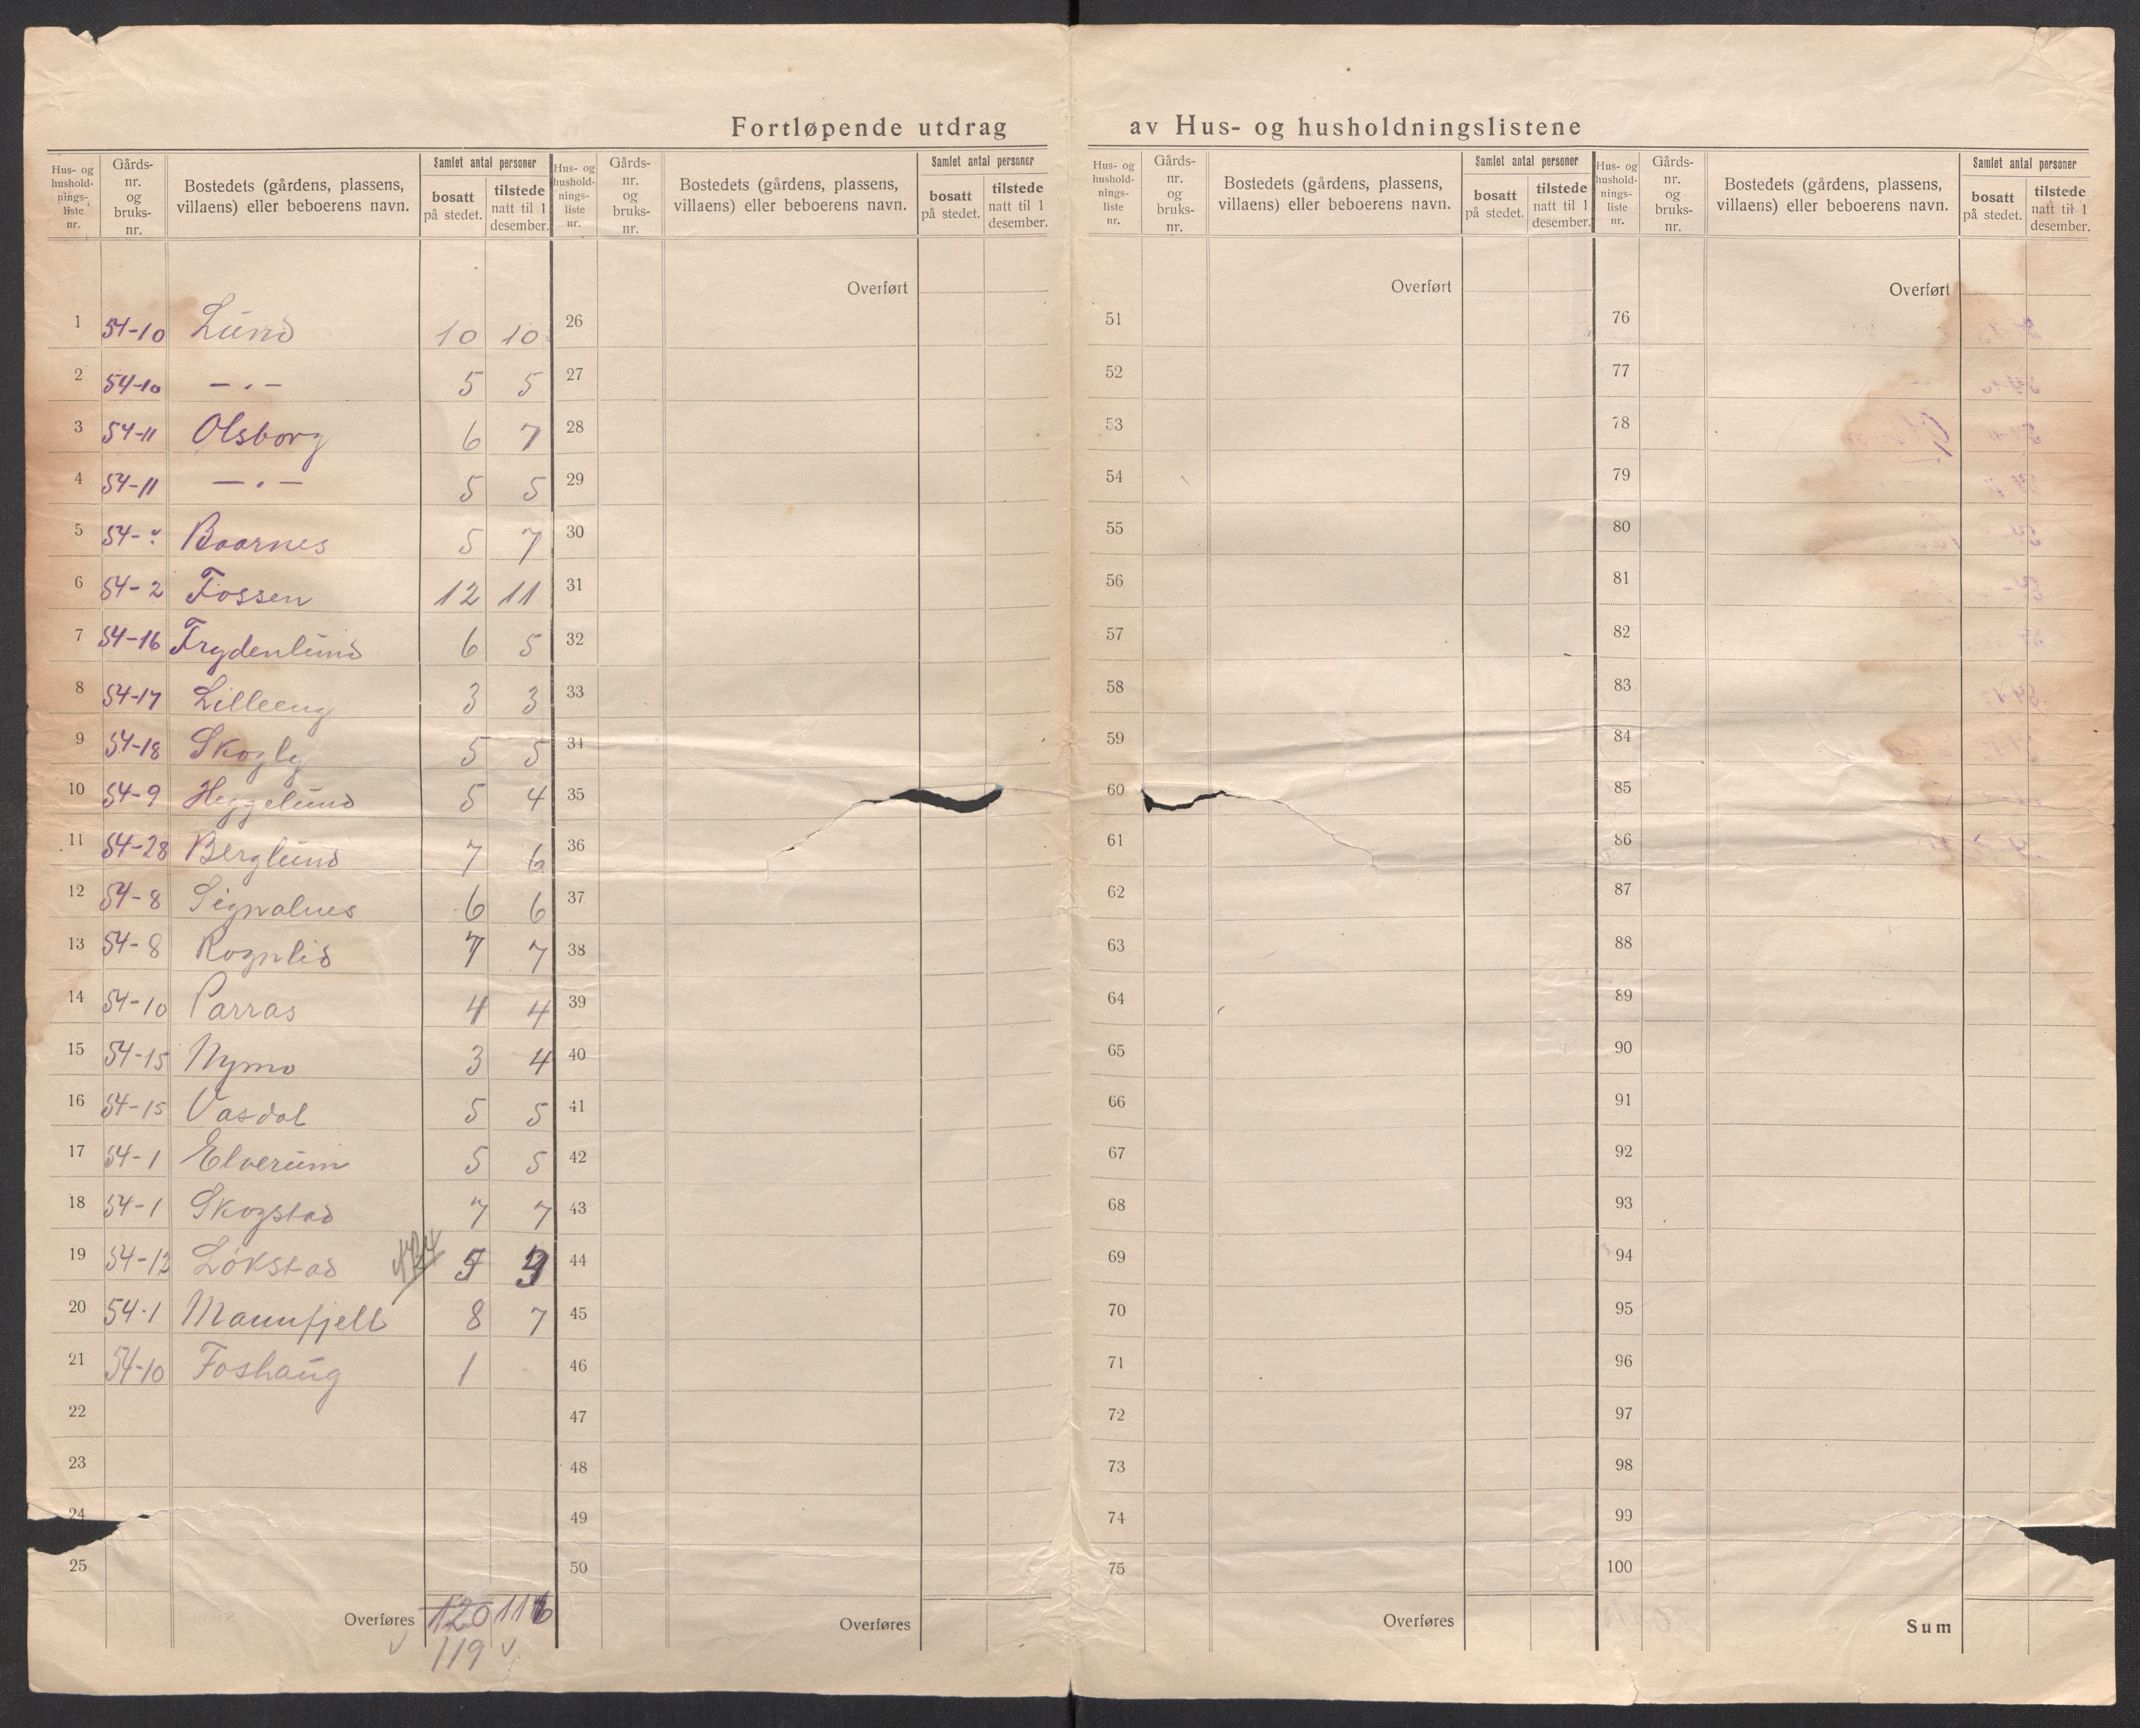 Fortløpende utdrag av Hus- og husholdningslistene
Hus- og husholdningsliste nr. | Gårds-nr. og bruks-nr. | Bostedets (gårdens, plassens, villaens) eller beboerens navn. | Samlet antal personer bosatt på stedet. | tilstede natt til 1 desember.
1 54-10 Lund 10 10
2 54-10 —.— 5 5
3 54-11 Olsborg 6 7
4 54-11 —.— 5 5
5 54-" Baarnes 5 7
6 54-2 Fossen 12 11
7 54-16 Frydenlund 6 5
8 54-17 Lilleeng 3 3
9 54-18 Skogly 5 5
10 54-9 Heggelund 5 4
11 54-28 Berglund 7 6
12 54-8 Signalnes 6 6
13 54-8 Rognlid 7 7
14 54-10 Parras 4 4
15 54-15 Nymo 3 4
16 54-15 Vasdal 5 5
17 54-1 Elverum 5 5
18 54-1 Skogstad 7 7
19 54-12 Løkstad
20 54-1 Maunfjell 8 7
21 54-10 Foshaug 1 -
22
23
24
25
Overføres 120 116
119
Hus- og husholdningsliste nr. | Gårds-nr. og bruks-nr. | Bostedets (gårdens, plassens, villaens) eller beboerens navn. | Samlet antal personer bosatt på stedet. | tilstede natt til 1 desember.
Overført
26
27
28
29
30
31
32
33
34
35
36
37
38
39
40
41
42
43
44
45
46
47
48
49
50
Overføres
Hus- og husholdningsliste nr. | Gårds-nr. og bruks-nr. | Bostedets (gårdens, plassens, villaens) eller beboerens navn. | Samlet antal personer bosatt på stedet. | tilstede natt til 1 desember.
Overført
51
52
53
54
55
56
57
58
59
60
61
62
63
64
65
66
67
68
69
70
71
72
73
74
75
Overføres
Hus- og husholdningsliste nr. | Gårds-nr. og bruks-nr. | Bostedets (gårdens, plassens, villaens) eller beboerens navn. | Samlet antal personer bosatt på stedet. | tilstede natt til 1 desember.
Overført
76
77
78
79
80
81
82
83
84
85
86
87
88
89
90
91
92
93
94
95
96
97
98
99
100
Sum